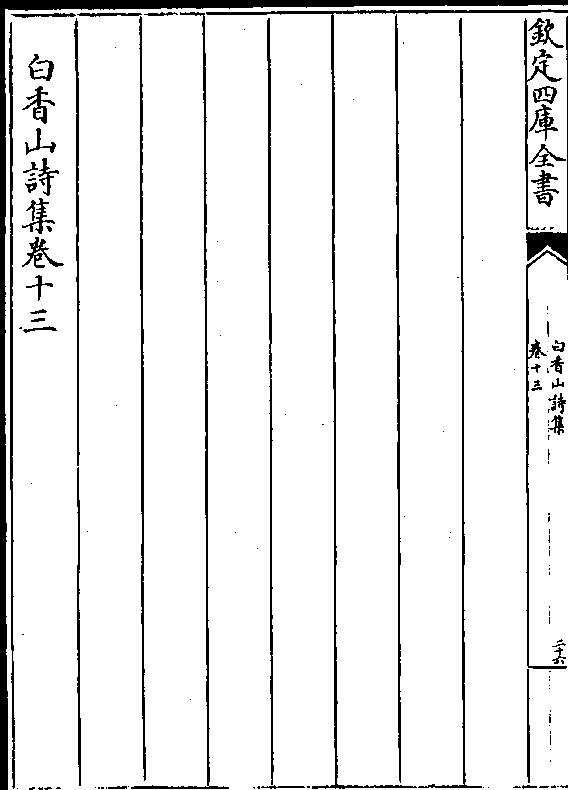 欽定四庫全書
白香山詩集
卷十三
二十六
白香山詩集卷十三